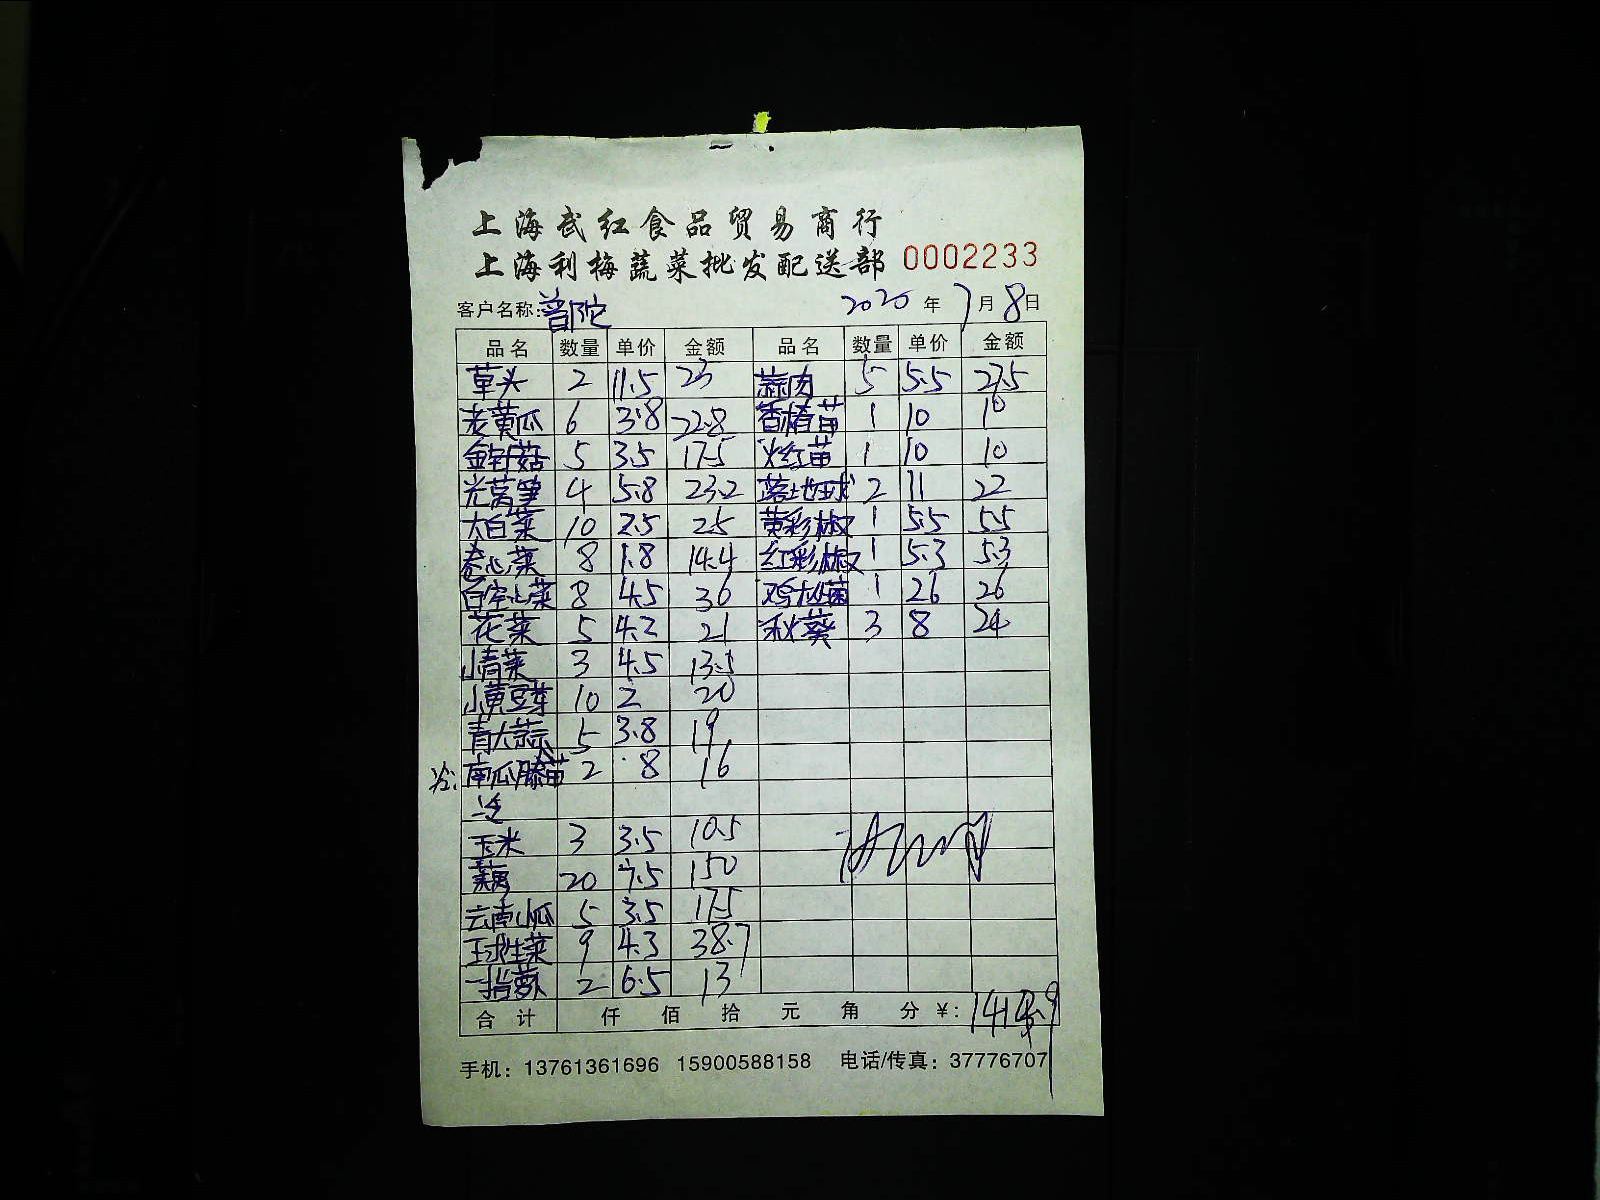 上海武红食品贸易商行
上海利梅蔬菜批发配送部 0002233
客户名称:普陀 2020年7月8日
品名 数量 单价 金额 品名 数量 单价 金额
草头 2 11.5 23 蒜肉 5 5.5 27.5
老黄瓜 6 3.8 22.8 香椿苗 1 10 10
金针菇 5 3.5 17.5 火红苗 1 10 10
光莴笋 4 5.8 23.2 落地球 2 11 22
大白菜 10 2.5 25 黄彩椒 1 5.5 5.5
卷心菜 8 1.8 14.4 红彩椒 1 5.3 5.3
白空心菜 8 4.5 36 鸡枞菌 1 26 26
花菜 5 4.2 21 秋葵 3 8 24
小青菜 3 4.5 13.5
小黄豆芽 10 2 20
青大蒜 5 3.8 19
南瓜藤苗 2 8 16
玉米 3 3.5 10.5
藕 20 7.5 150
云南小瓜 5 3.5 17.5
玉球生菜 9 4.3 38.7
一指萝卜 2 6.5 13
合计 仟 佰 拾 元 角 分 ¥:
手机:13761361696 15900588158 电话/传真:37776707